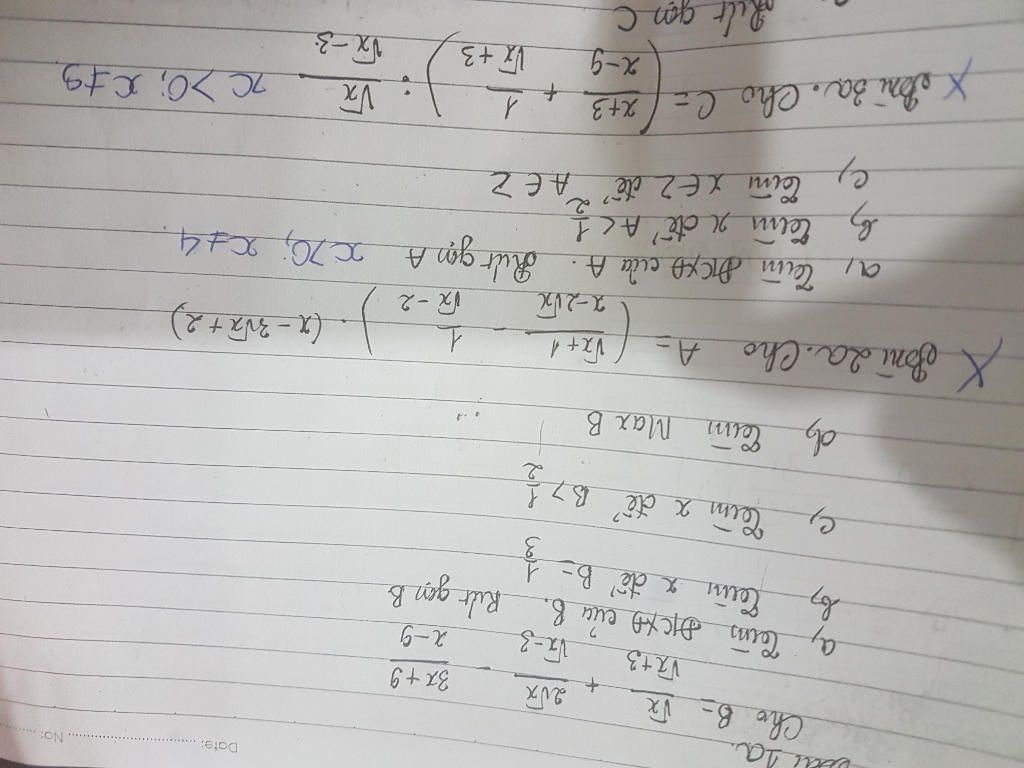 Date: No:
Bài 1a.
Cho B = √x/(√x+3) + 2√x/(√x-3) - (3x+9)/(x-9)
a, Tìm ĐKXĐ của B. Rút gọn B
b, Tìm x để B = 1/3
c, Tìm x để B > 1/2
d, Tìm Max B
X Bài 2a. Cho A = ((√x+1)/(x-2√x) - 1/(√x-2)) . (x-3√x+2)
a, Tìm ĐKXĐ của A. Rút gọn A x>0; x≠4.
b, Tìm x để A < 1/2
c, Tìm x ∈ Z để A ∈ Z
X Bài 3a. Cho C = ((x+3)/(x-9) + 1/(√x+3)) : √x/(√x-3) x>0; x≠9
Rút gọn C